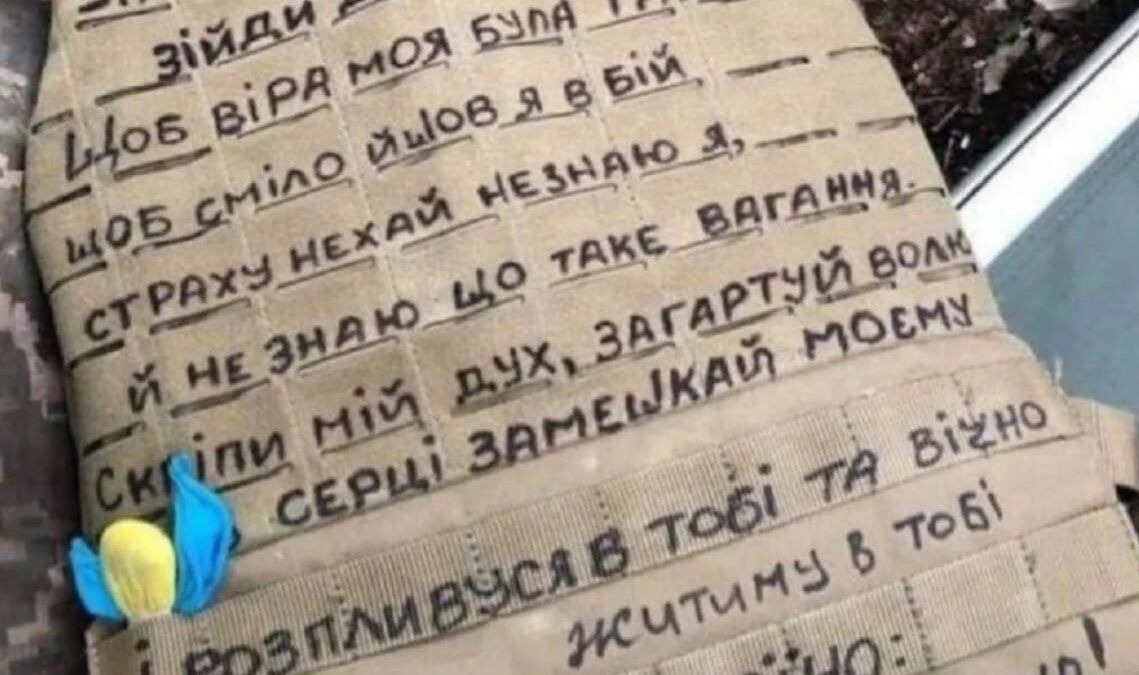 ЗІЙДИ
ЩОБ ВІРА МОЯ БУЛА
ЩОБ СМІЛО ЙШОВ Я В БІЙ
СТРАХУ НЕХАЙ НЕЗНАЮ Я,
Й НЕ ЗНАЮ ЩО ТАКЕ ВАГАННЯ.
СКРІПИ МІЙ ДУХ, ЗАГАРТУЙ ВОЛЮ
СЕРЦІ ЗАМЕШКАЙ МОЄМУ
І РОЗПЛИВУСЯ В ТОБІ ТА ВІЧНО
ЖИТИМУ В ТОБІ